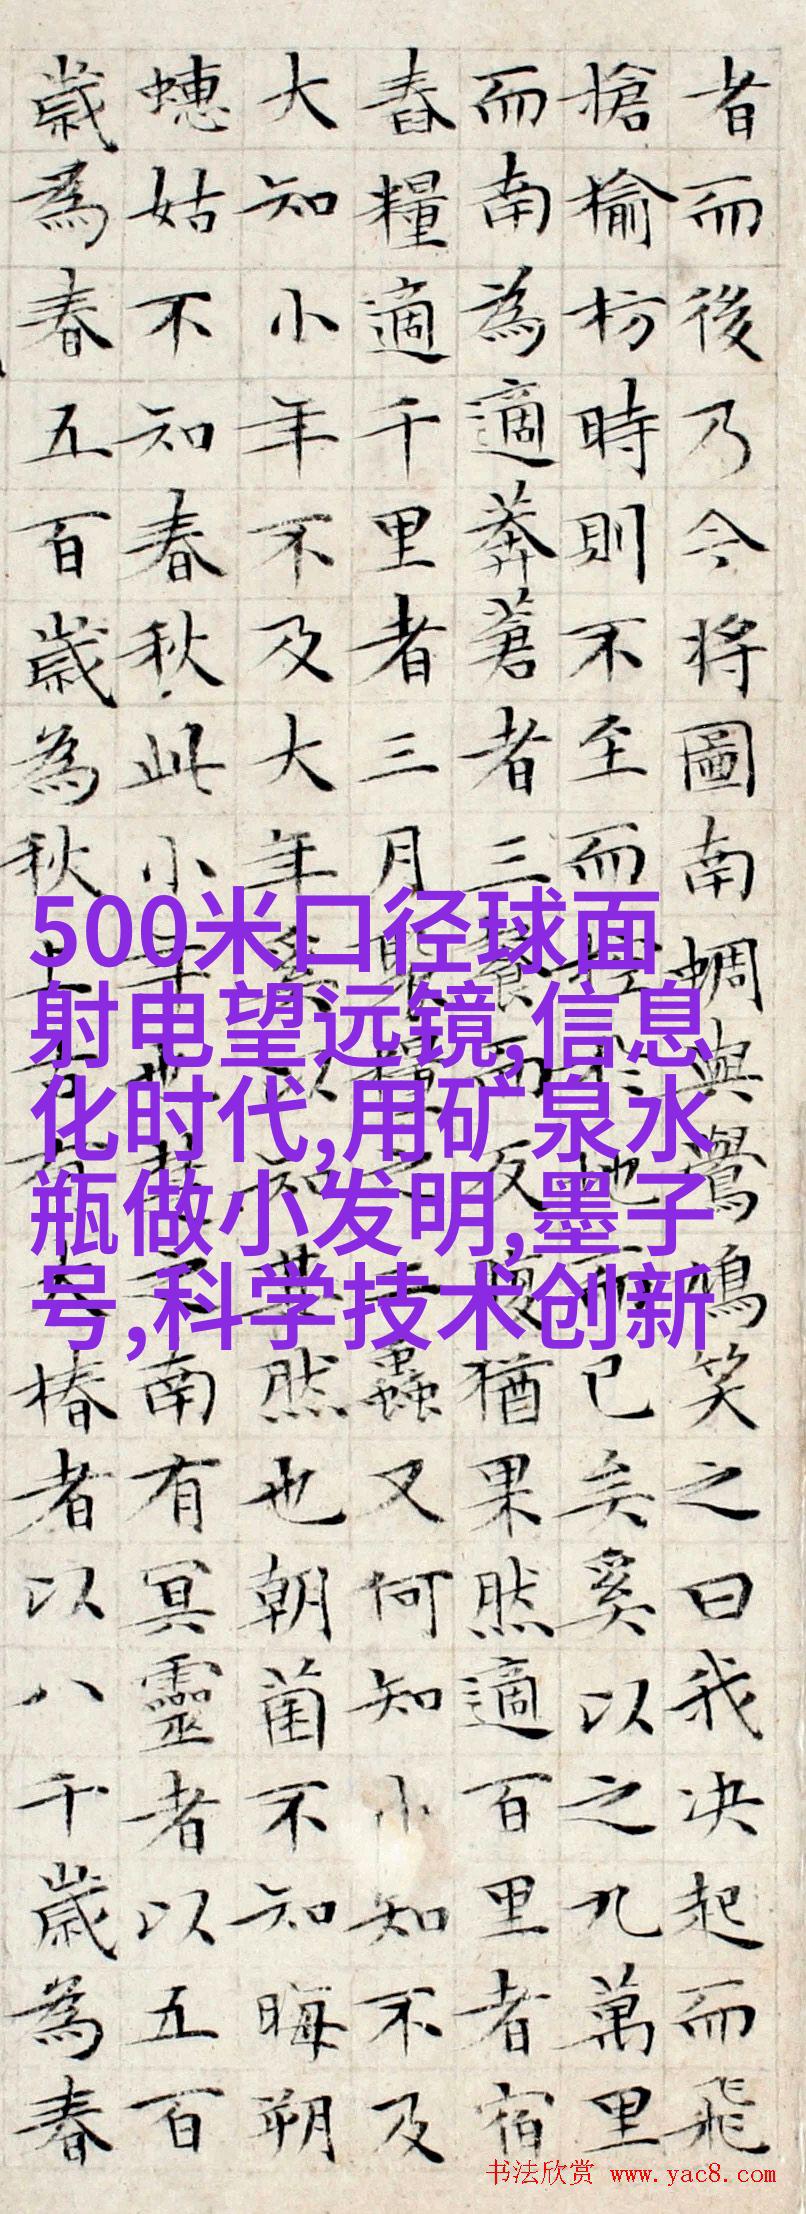 者而後乃今將圖南蜩與鷽鳩笑之曰我决起而飛
搶榆枋時則不至而控於地而已矣奚以之九萬里
而南為適莽蒼者三餐而反腹猶果然適百里者宿
舂糧適千里者三月聚糧之二蟲又何知小知不及
大知小年不及大年奚以知其然也朝菌不知晦朔
蟪姑不知春秋此小年也楚之南有冥靈者以五百
歲為春五百歲為秋上古有大椿者以八千歲為春
500米口径球面
射电望远镜,信息
化时代,用矿泉水
瓶做小发明,墨子
号,科学技术创新
书法欣赏 www.yac8.com